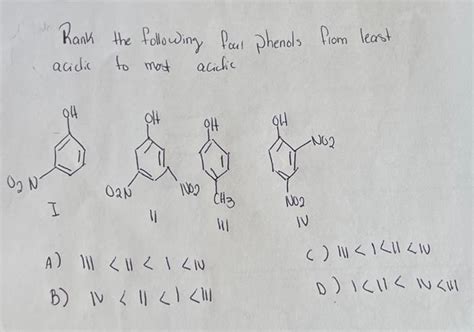 Rank the following four phenols from least
acidic to most acidic
OH OH OH OH
NO2
O2N O2N NO2 CH3 NO2
I II III IV
A) III < II < I < IV
C) III < I < II < IV
B) IV < II < I < III
D) I < II < IV < III